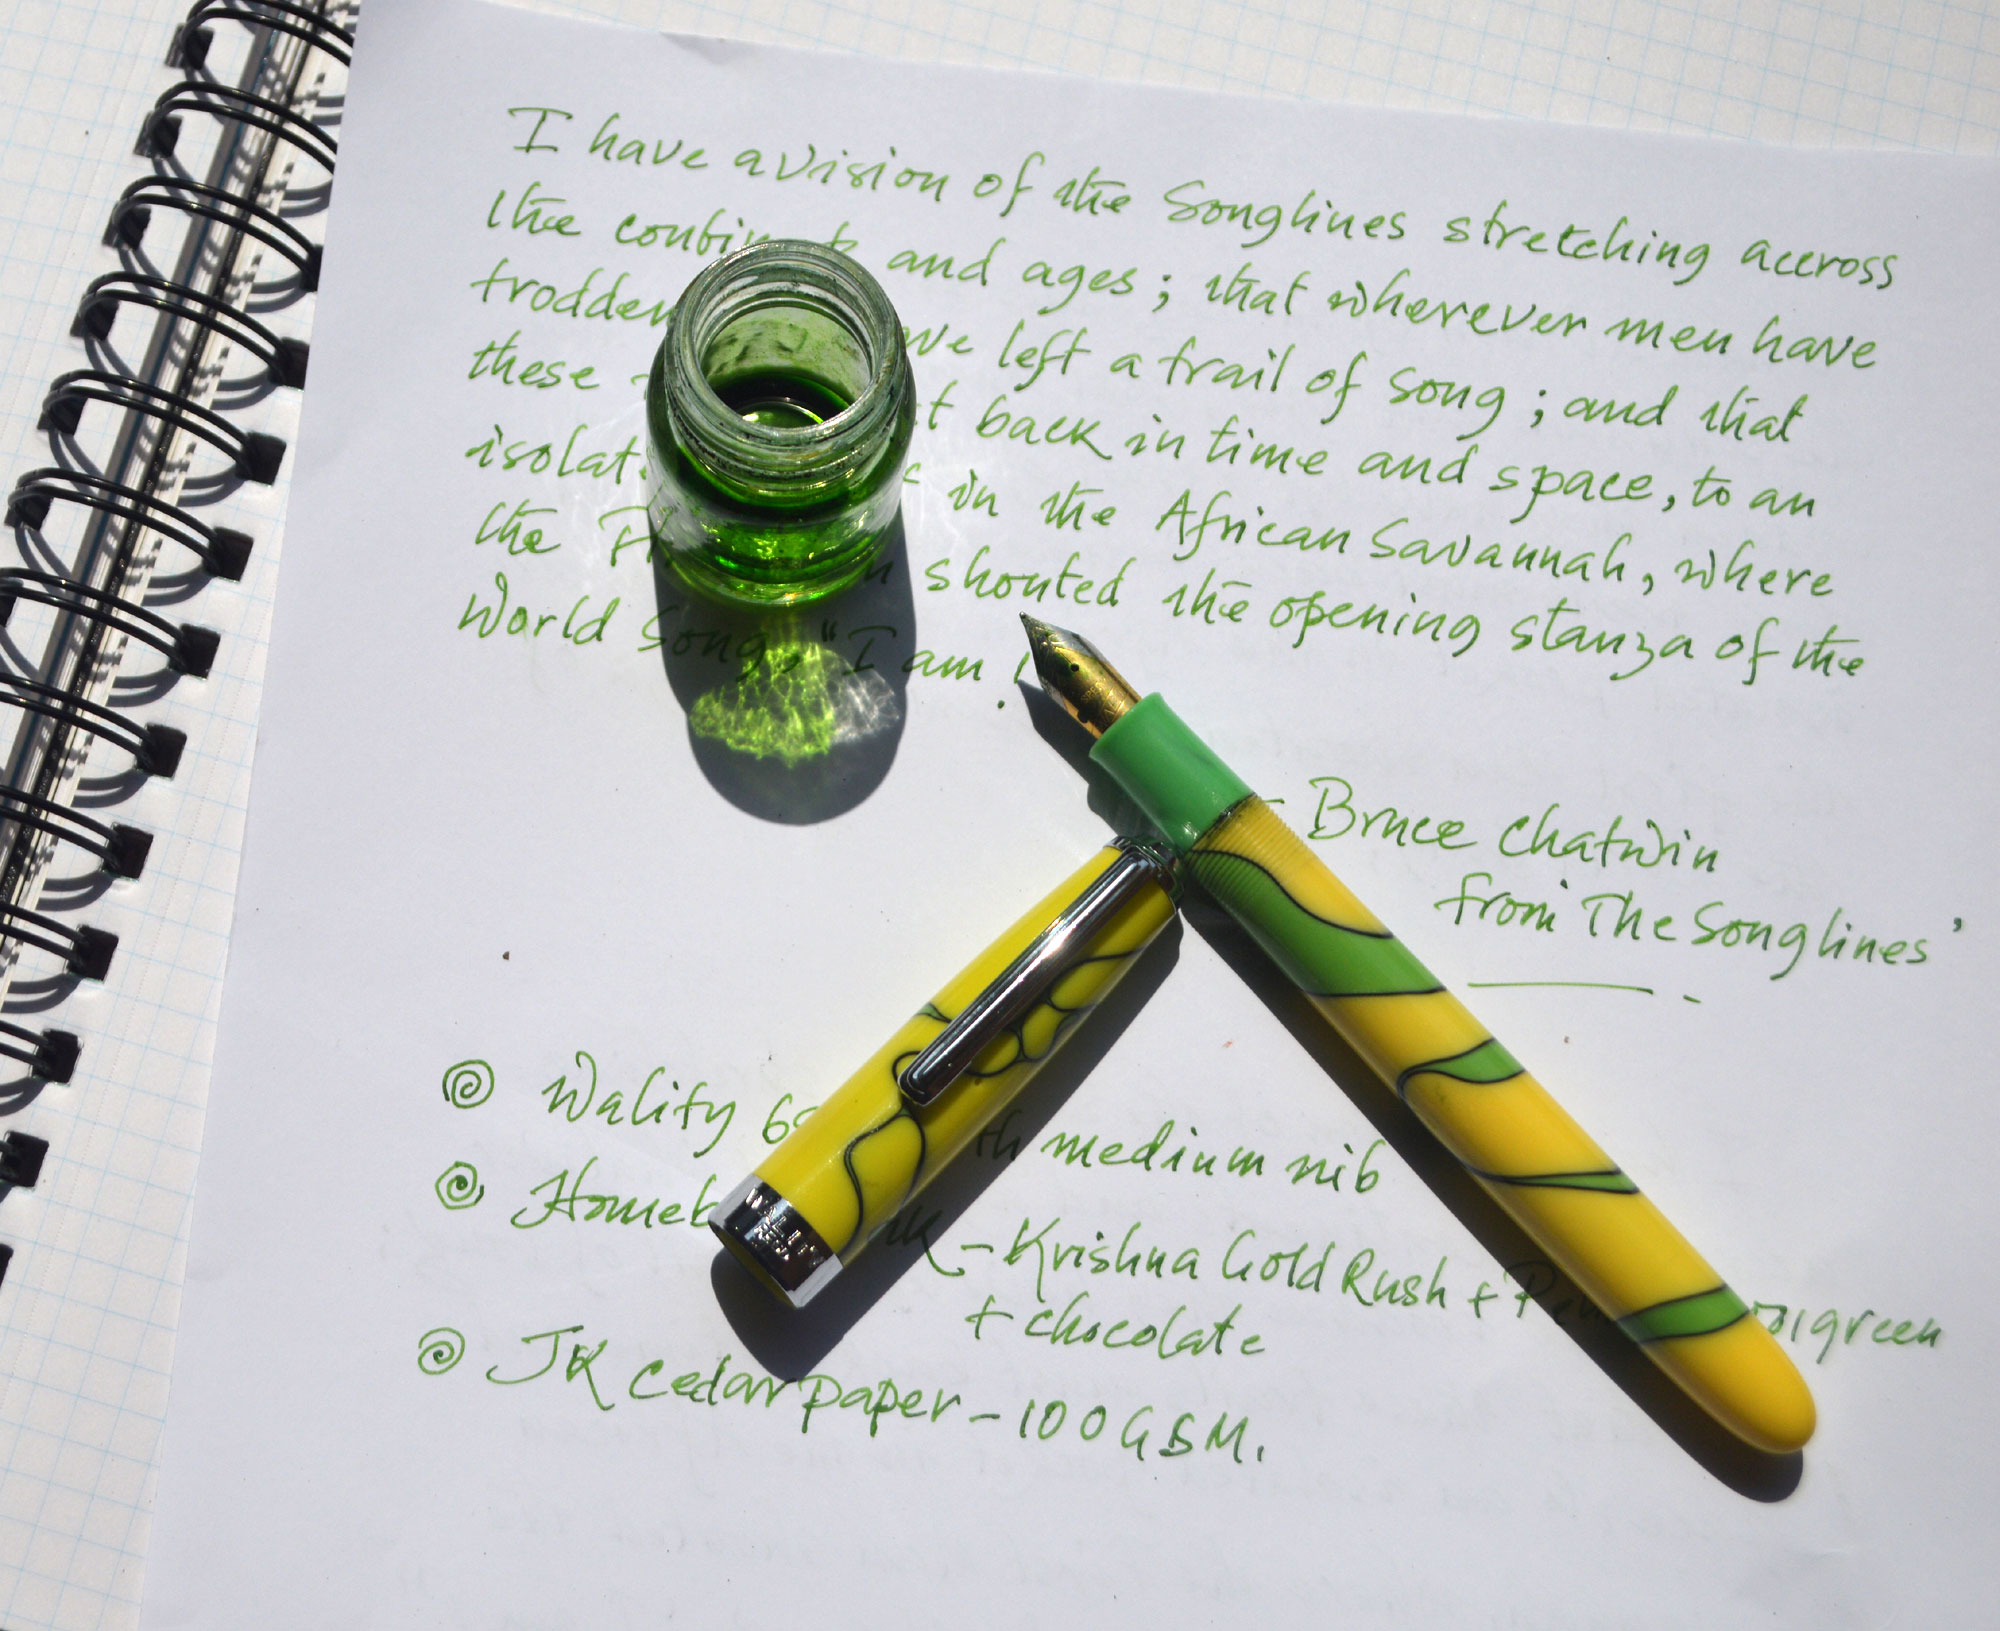 I have a vision of the Songlines stretching accross
the and ages; that wherever men have
trodden left a trail of song; and that
these back in time and space, to an
in the African Savannah, where
the shouted the opening stanza of the
World Song, "I am!
- Bruce Chatwin
from The Songlines'
Wality medium nib
- Krishna Gold Rush +
+ chocolate
JK cedar paper - 100 GSM.
WALITY